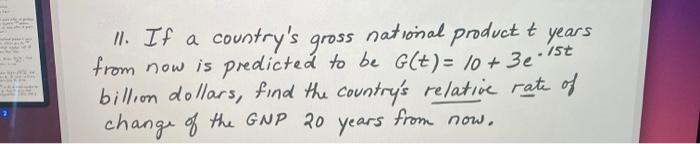 11. If a country's gross national product t years
from now is predicted to be G(t) = 10 + 3e^.15t
billion dollars, find the country's relative rate of
change of the GNP 20 years from now.